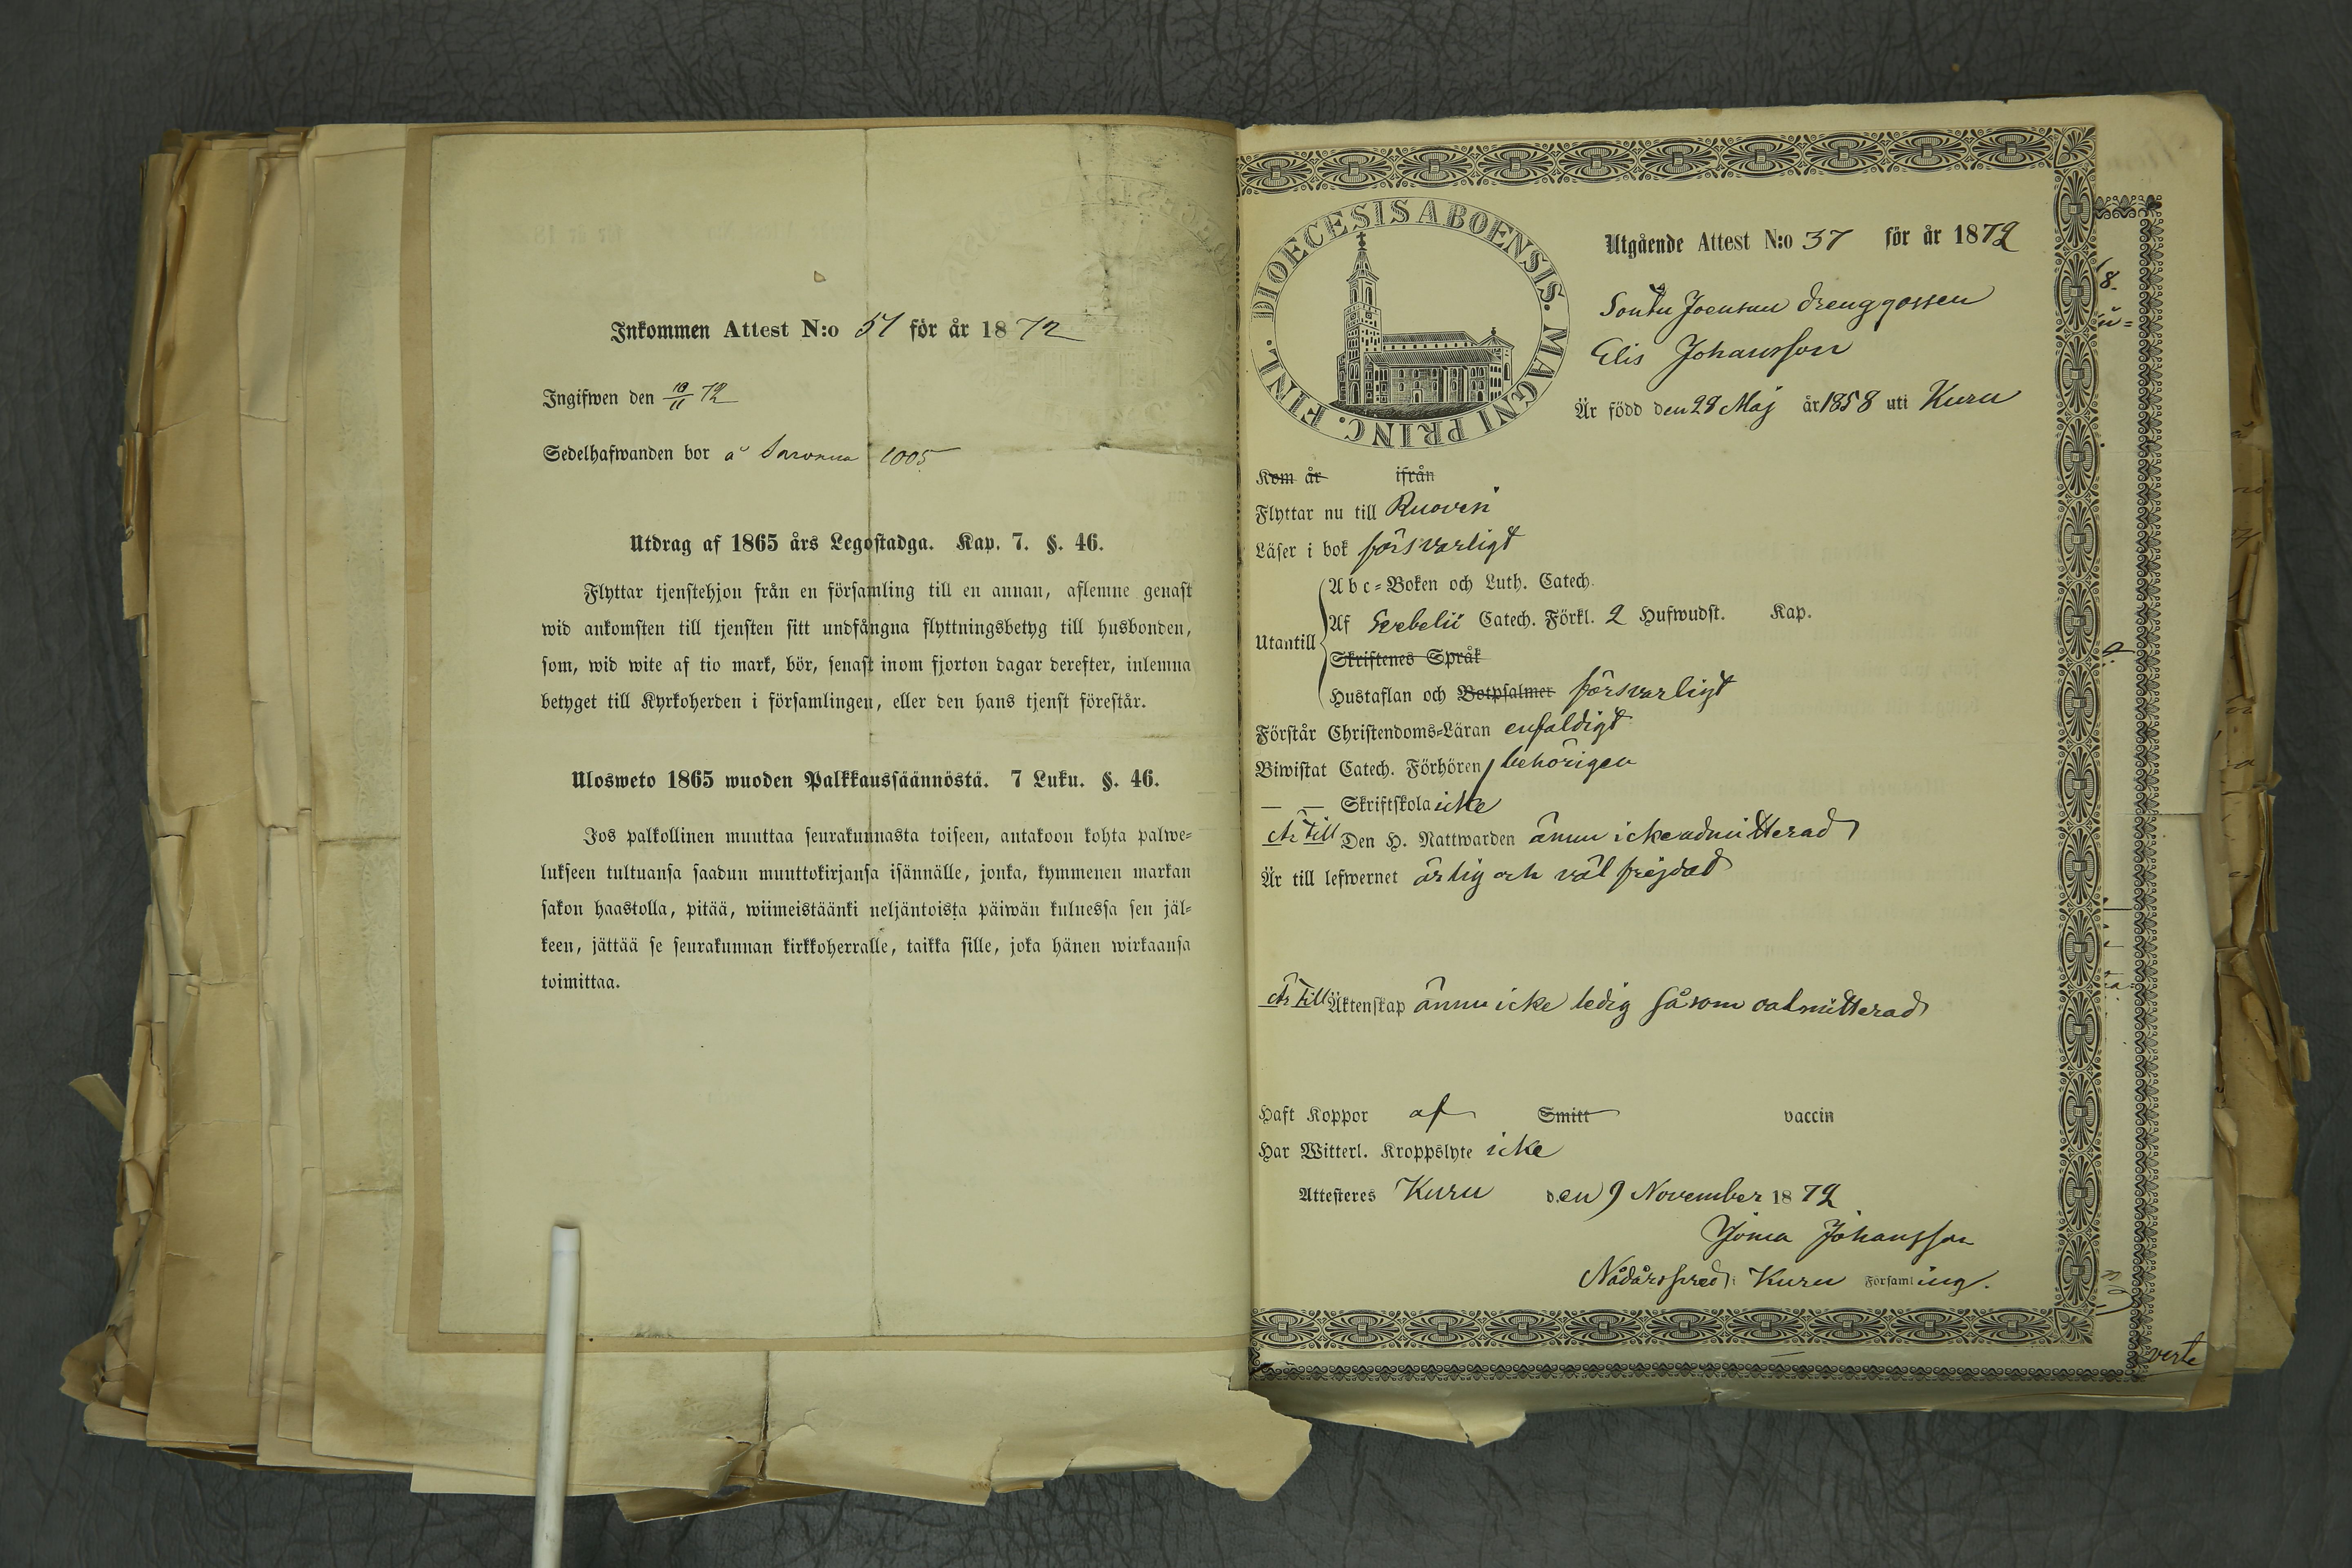 Inkommen Attest N:o 51 för år 1872
Ingifwen den 10/11 72
Sedelhafwanden bor å 1005
Utdrag af 1865 års Legostadga. Kap. 7. §. 46.
Flyttar tjenstehjon från en församling till en annan, aflemne genast
wid ankomsten till tjensten sitt undfångna flyttningsbetyg till husbonden,
som, wid wite af tio mark, bör, senast inom fjorton dagar derefter, inlemna
betyget till Kyrkoherden i församlingen, eller den hans tjenst förestår.
Ulosweto 1865 wuoden Palkkaussäännöstä. 7 Luku. §. 46.
Jos palkollinen muuttaa seurakunnasta toiseen, antakoon kohta palwe-
lukseen tultuansa saadun muuttokirjansa isännälle, jonka, kymmenen markan
sakon haastolla, pitää, wiimeistäänki neljäntoista päiwän kuluessa sen jäl-
keen, jättää se seurakunnan kirkkoherralle, taikka sille, joka hänen wirkaansa
toimittaa.
DIOECESIS ABOENSIS. MAGNI PRINC. FINL.
Utgående Attest N:o 37 för år 1872
drenggossen
Elis Johansson
Är född den 28 Maj år 1858 uti Kuru
Kom år ifrån
Flyttar nu till Ruovesi
Läser i bok försvarligt
Utantill
Abc-Boken och Luth. Catech.
Af Svebelii Catech. Förkl. 2 Hufwudst. Kap.
Skriftenes Språk
Hustaflan och Botpsalmer försvarligt
Förstår Christendoms-Läran enfaldigt
Biwistat Catech. Förhören behörigen
— — Skriftskola icke
Är till Den H. Nattwarden ännu icke admitterad
Är till lefwernet ärlig och väl frejdad
Är till Äktenskap ännu icke ledig såsom oadmitterad
Haft Koppor af Smitt vaccin
Har Witterl. Kroppslyte icke
Attesteres Kuru den 9 November 1872
Johansson
Nådårspred. i Kuru Församling.
verte